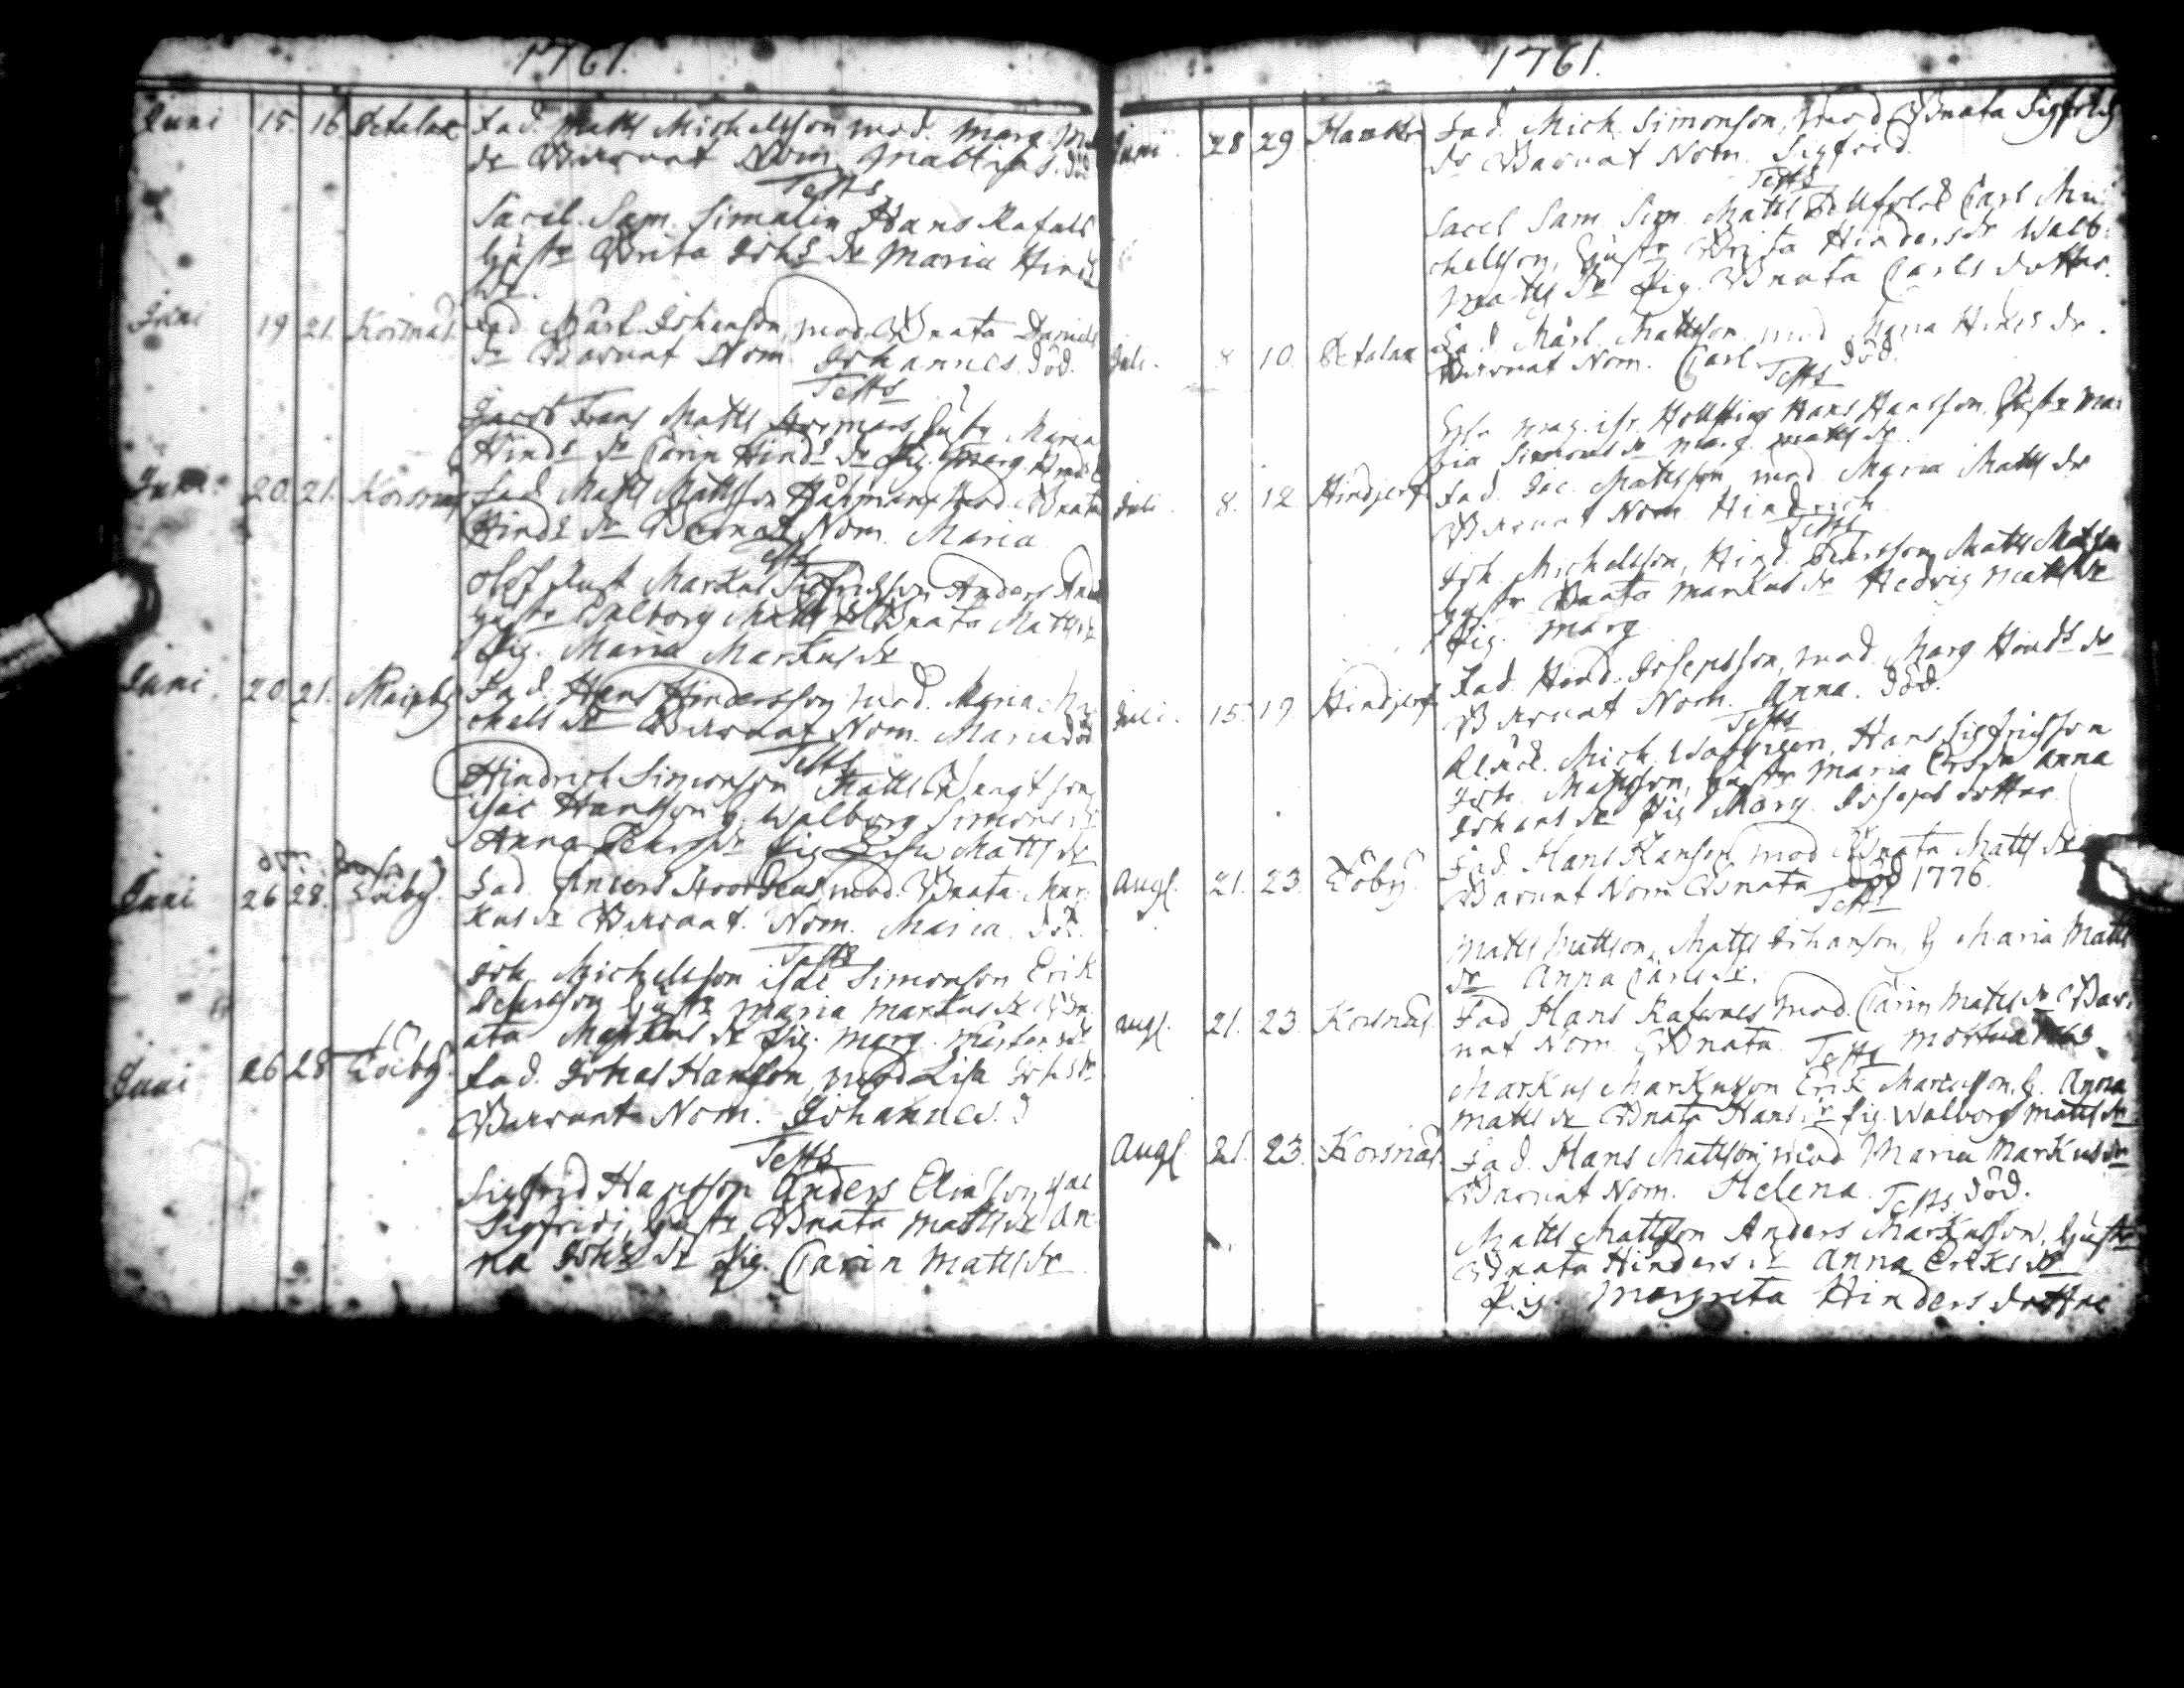 1761.
Juni 15. 16 Petalax Fad. Matts Michelsson mod. Marg. Ma
dr Barnat Nom. Matthias. död
Testes
Sacel. Sam. Simalin Hans Rafaels
hustr Brita Johs dr Maria Hind
dr.
Juni 19 21. Korsnäs. Fad. Mårt. Johanson, mod. Bnata Daniels
dr Barnat Nom. Johannes. död.
Testes
Jacob Frans Matts hustr Maria
Hinds dr Carin Hinds dr Pig. Marg. Hinds
Juni 20. 21. Korsnäs Fad. Matts Mattsson mod. Bnata
Hinds dr Barnat Nom. Maria
Testes
Olof Rust Markus Sigfridsson Anders And
hustr Valborg Matts dr Bnata Matts dr
Pig. Maria Markus dr
Juni. 20 21. Fad. Hans Hindersson mod. Maria Mi
chels dr Barnat Nom. Maria död
Testes
Hindrich Simonson Matts Bengtson
isac Hansson h. Walborg Simons dr
Anna Pehrs dr Pig Lisa Matts dr
Juni 26 28. Töiby. Fad. Anders mod. Bnata Mar
kus dr Barnat. Nom. Maria. död.
Testes
Joh. Michelsson isac Simonson Erik
Pehrsson hustr Maria Markus dr Bn
ata Markus dr Pig. Marg. Mårtens dr
Juni 26 28 Töiby. Fad. Johas Hanson, mod Lisa Johs dr
Barnat Nom. Johannes. d
Testes
Sigfrid Hansson Anders Eliasson isac
Sigfridi, hustr Bnata Matts dr An
na Johs dr Pig. Carin Matts dr
1761.
Juni. 28 29. Fad. Mich. Simonson, mod Bnata Sigfrids
dr Barnat Nom. Sigfrid.
Testes
Sacel Sam. Sim. Matts Carl Mi
chelsson, hustr Brita Hinders dr Walb.
Matts dr Pig. Bnata Carls dotter.
Juli. 8 10. Petalax Fad. Mårt. Mattsson mod Maria Hinds dr.
Barnat Nom. Carl. död.
Testes
Hans Hansson, hustr Ma
ria Simons dr Marg. Matts dr
Juli. 8. 12 Hindjerf Fad. Jac. Mattsson, mod Maria Matts dr
Barnat Nom. Hindrich
Testes
Joh. Michelsson, Hind. Pehrsson, Matts Matsson
hustr Bnata Markus dr Hedvig Matts dr
Pig. Marg
Juli. 15 19 Hindjerf Fad. Hind. Josepsson, mod. Marg Hinds dr
Barnat Nom. Anna. död.
Testes
Mich. Hans Sigfridsson
Joh. Mattsson, hustr Maria Ers dr Anna
Johans dr Pig Marg. Joseps dotter
Augl. 21. 23. Töby. Fad. Hans Hanson mod Bnata Matts dr
Barnat Nom Bnata död 1776.
Testes
Matts Mattson, Matts Johanson, h Maria Matts
dr Anna Carls dr.
Augl. 21. 23 Korsnäs. Fad Hans Rafaels mod. Carin Matts dr Bar
nat Nom. Bnata. Testes mortua
Markus Markusson Erik Marcusson, h. Anna
Matts dr Bnata Hans dr Pig. Walborg Matts dr
Augl. 21. 23. Korsnäs. Fad. Hans Mattson, mod Maria Markus dr
Barnat Nom. Helena. Testes död.
Matts Mattson Anders Markusson, hustr
Bnata Hinders dr Anna Eriks dr
Pig. Margreta Hinders dotter